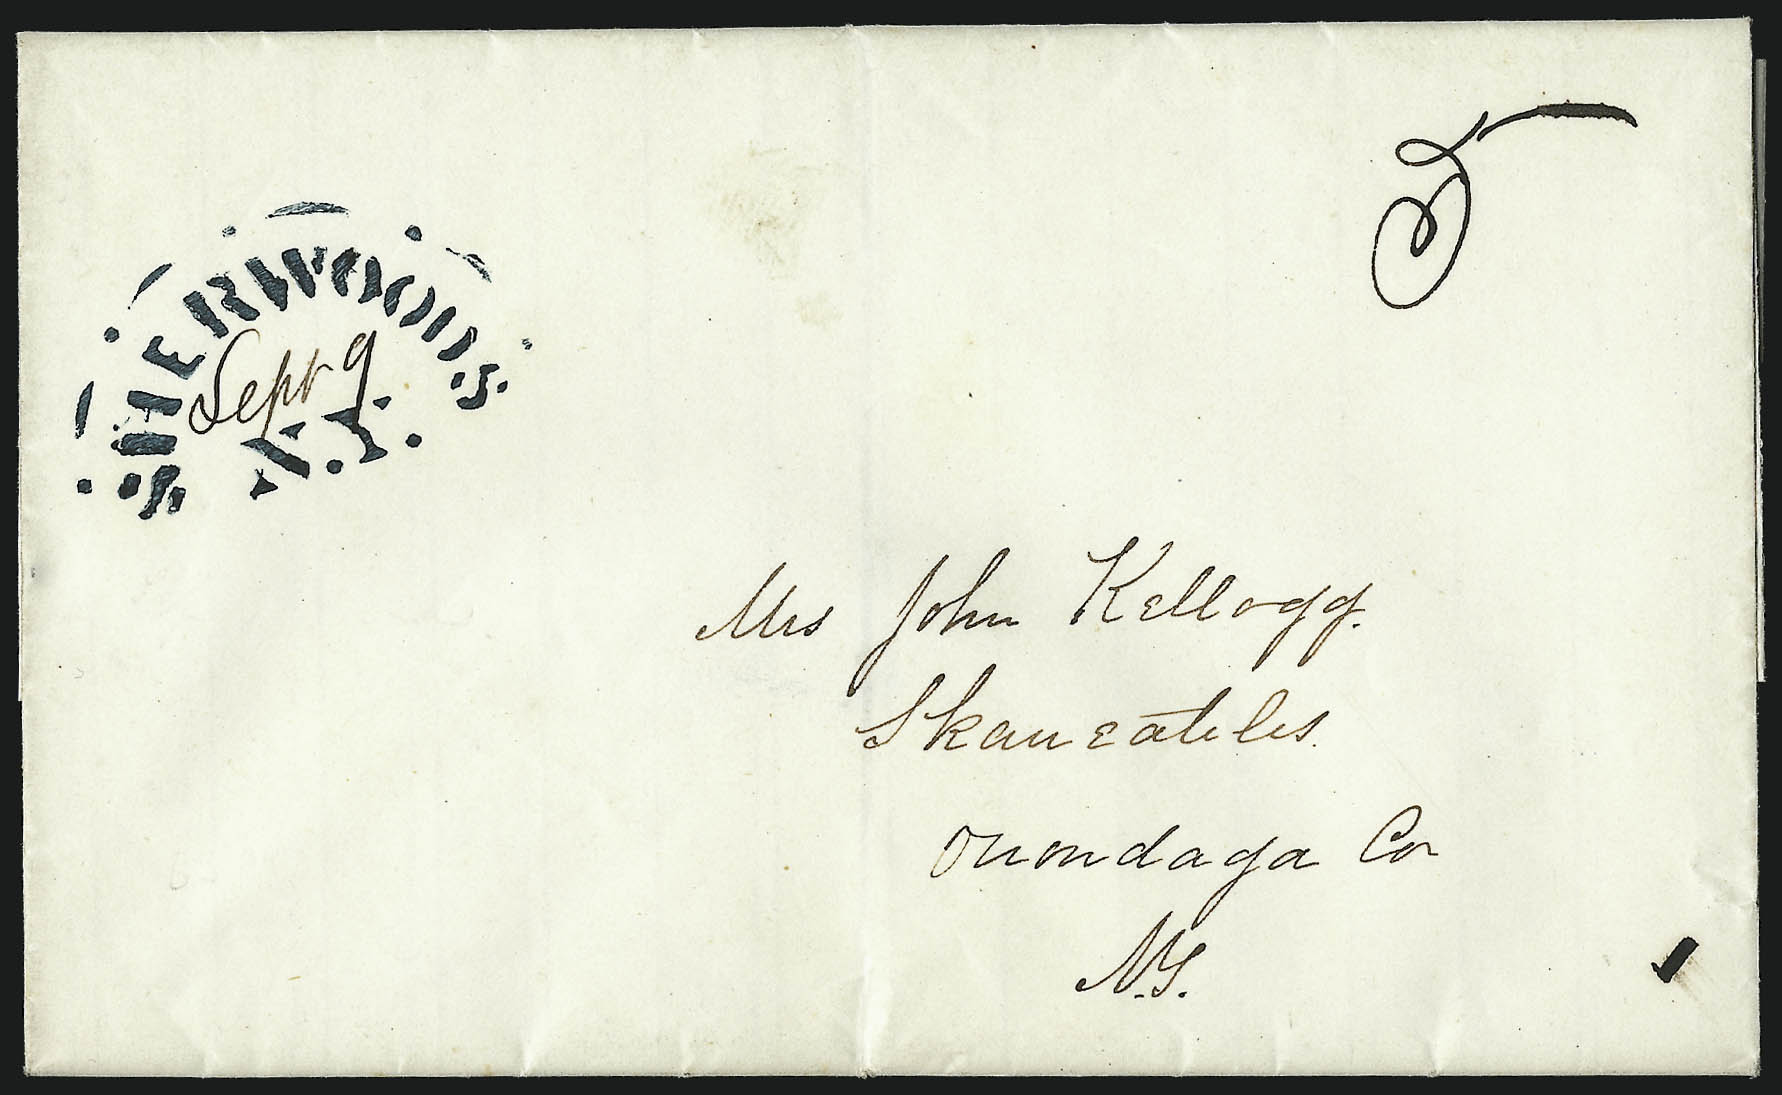 5
SHERWOODS
Sept 9
N.Y.
Mrs John Kellogg.
Skaneateles
Onondaga Co
N.Y.